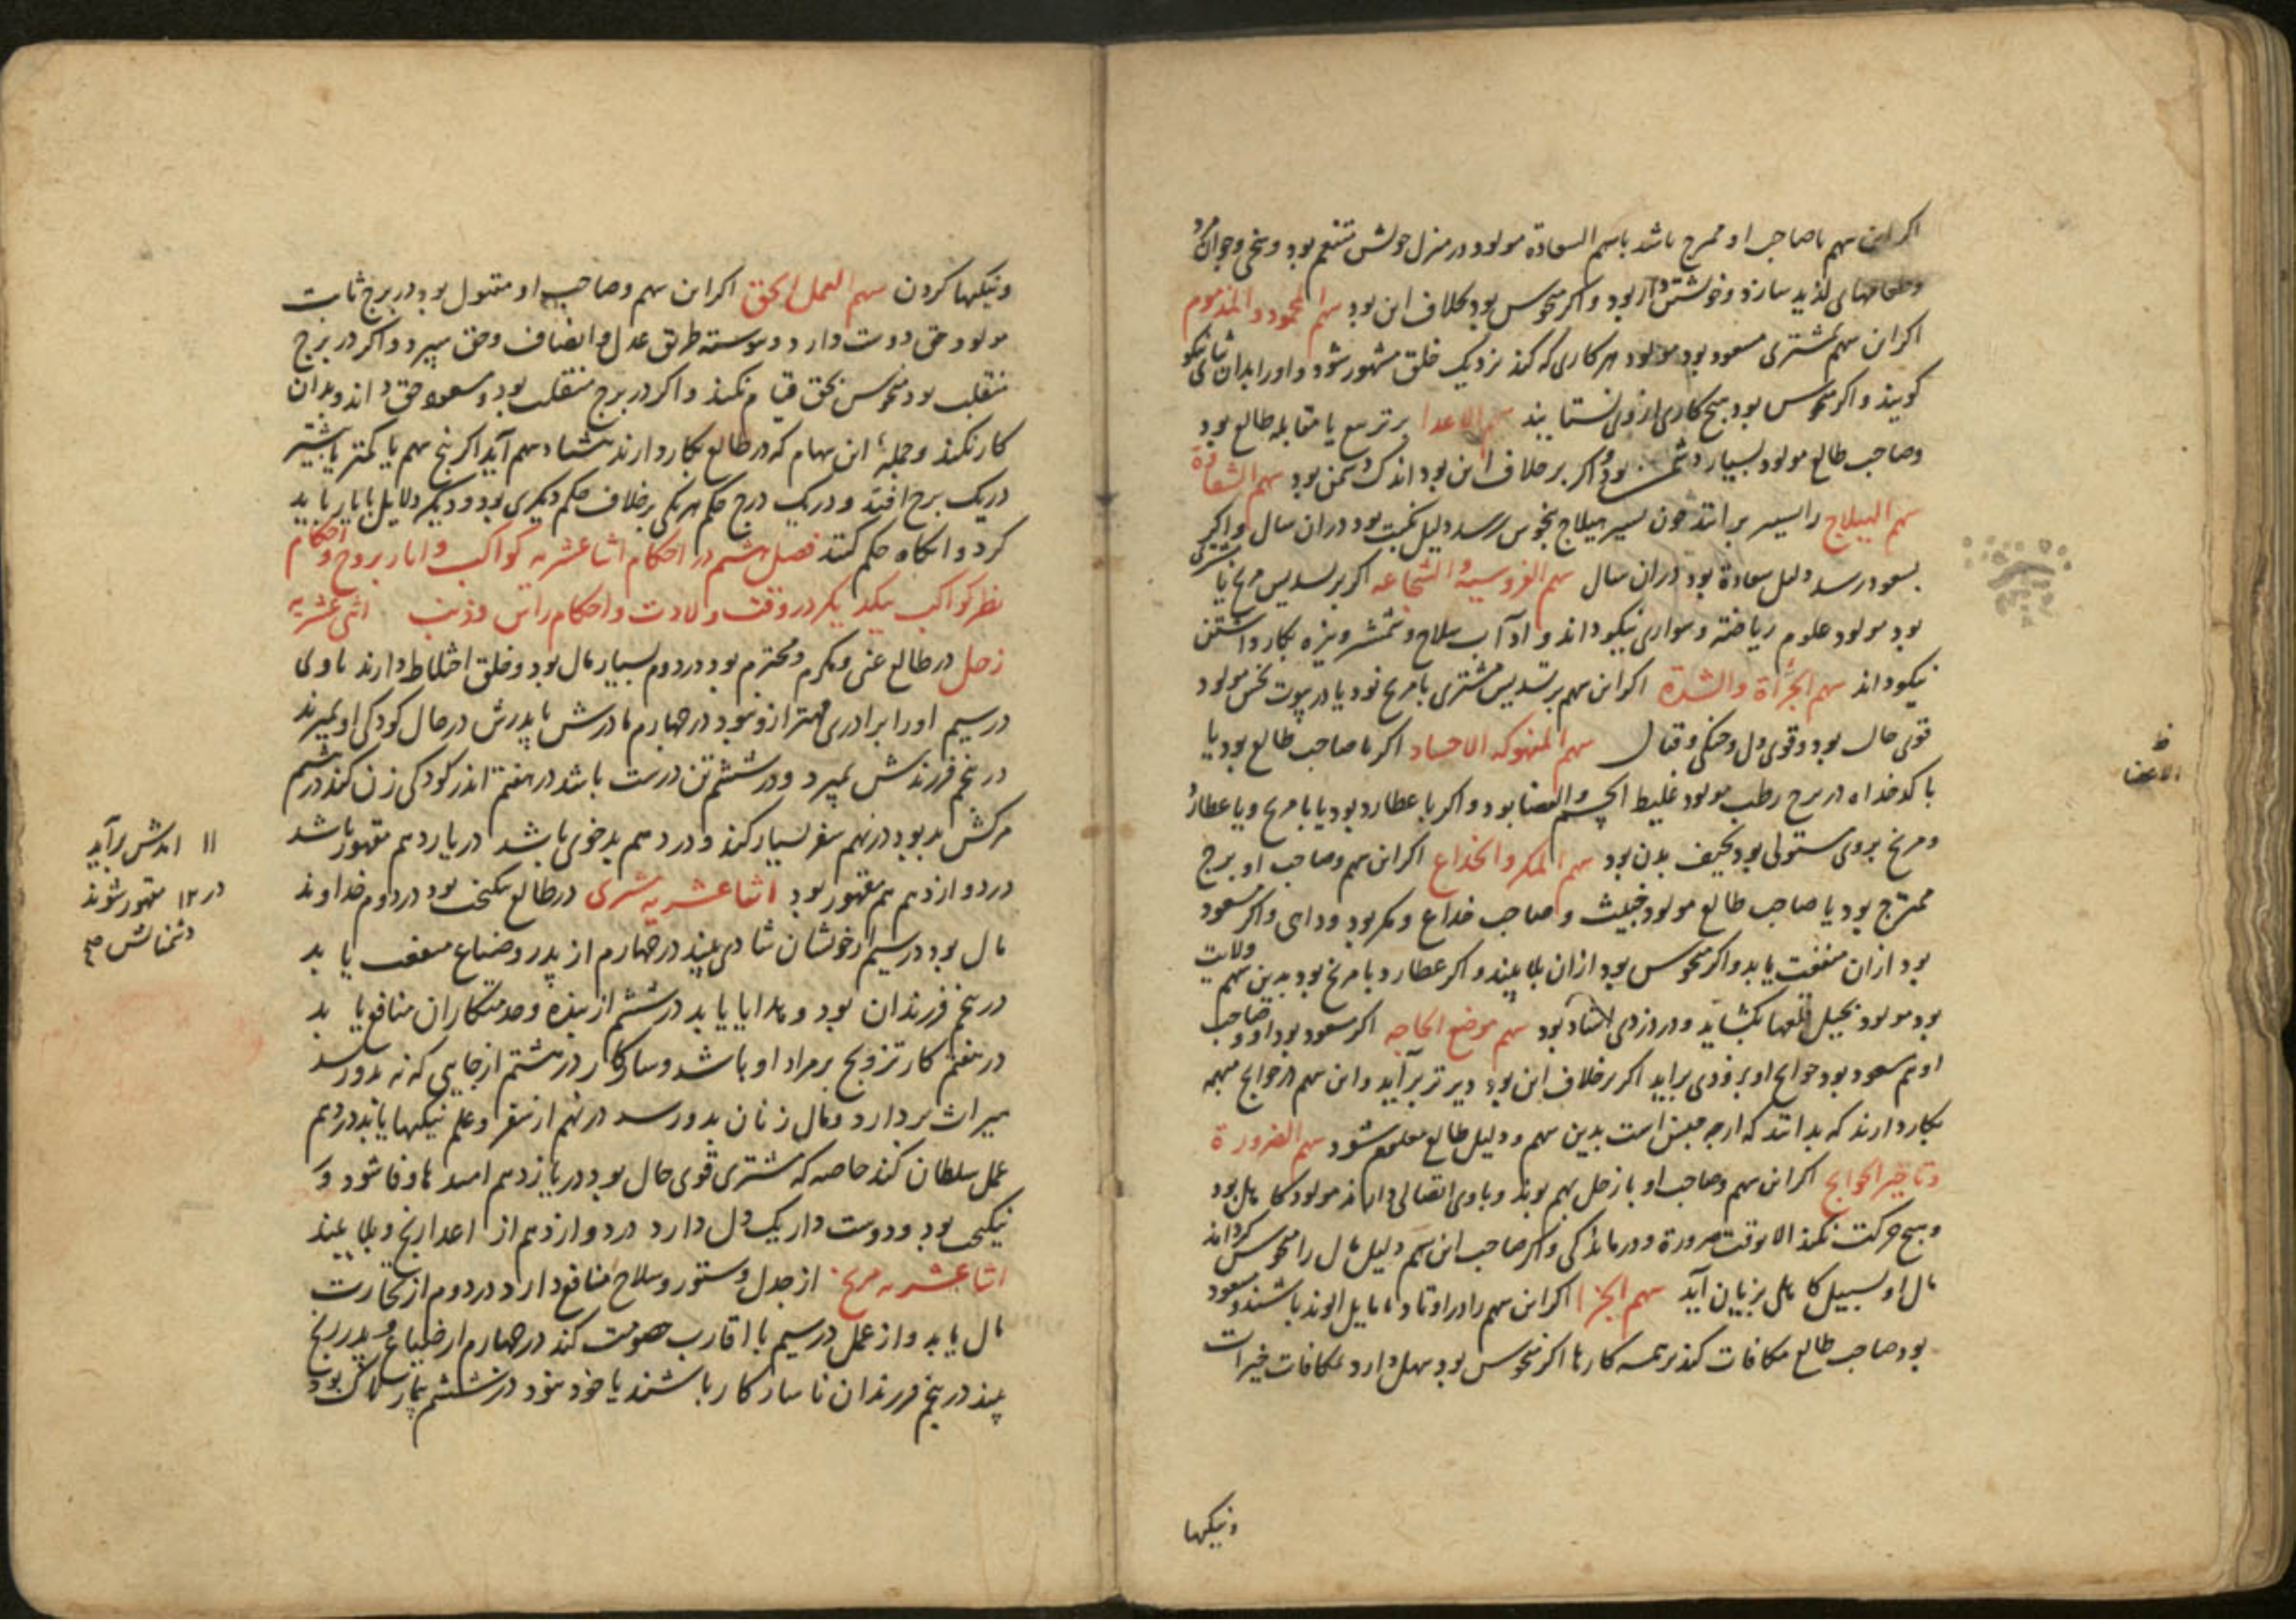 اکر این سهم باصاحب او ممزج باشد باسهم السعادة مولود در منزل خویش متنعم بود و سخی و جوانمرد
وطعامهای لذیذ سازد و خویشتن دار بود و اکر منحوس بود بخلاف این بود سهم المحمود والمذموم
اکر این سهم بمشتری مسعود بود مولود هر کاری که کند نزدیک خلق مشهور شود و او را بدان ثنای نیکو
کویند و اکر منحوس بود هیچ کاری از وی نستایند سهم الاعدا بر تربیع یا مقابله طالع بود
وصاحب طالع مولود بسیار دشمن بود و اکر برخلاف این بود اندک دشمن بود سهم الشقاوة
سهم الهیلاج را تسییر برانند چون تسییر هیلاج بنحوس رسد دلیل نکبت بود دران سال و اکر
بسعود رسد دلیل سعادة بود دران سال سهم الفروسیة والشجاعه اکر بر تسدیس مریخ یا مشتری
بود مولود علوم ریاضت و سواری نیکو داند و آداب سلاح و شمشیر و نیزه بکار داشتن
نیکو داند سهم الجرأة والشدة اکر این سهم بر تسدیس مشتری یا مریخ بود یا در بیوت نحس مولود
قوی حال بود و قوی دل و جنکی و قتال سهم المنهوکه الاجساد اکر با صاحب طالع بود یا
با کدخداه در برج رطب مولود غلیظ الجسم والاعضا بود و اکر با عطارد بود یا با مریخ و یا عطارد
و مریخ بروی مستولی بود نحیف بدن بود سهم المکر والخداع اکر این سهم و صاحب او برج
ممتزج بود یا صاحب طالع مولود خبیث و صاحب خداع و مکر بود و داهی و اکر مسعود
بود ازان منفعت یابد و اکر منحوس بود ازان بلا بیند و اکر عطارد با مریخ بود بدین سهم ولایت
بود مولود بحیل قلعها بکشاید و در دزدی استاد بود سهم موضع الحاجه اکر مسعود بود او و صاحب
او هم مسعود بود حوایج او بزودی براید اکر برخلاف این بود دیرتر برآید و این سهم در حوایج مبهم
بکار دارند که بدانند که از چه جنس است بدین سهم و دلیل طالع معلوم شود سهم الضرورة
وتاخیر الحوایج اکر این سهم وصاحب او با زحل بهم بوند و با وی اتصالی دارند مولود کاهل بود
وهیچ حرکت نکند الا بوقت ضرورة و درماندکی و اکر صاحب این سهم دلیل مال را منحوس کرداند
مال او بسبیل کاهلی بزیان آید سهم الجزا اکر این سهم را در اوتاد یا مایل الوتد باشند و مسعود
بود صاحب طالع مکافات کند بر همه کارها اکر منحوس بود سهل دارد مکافات خیرات
ونیکیها
ونیکیها کردن سهم العمل الحق اکر این سهم وصاحب او مقبول بود در برج ثابت
مولود حق دوست دارد و پیوسته طریق عدل و انصاف وحق سپرد و اکر در برج
منقلب بود منحوس بحق قیام نکند و اکر در برج منقلب بود و مسعود حق داند و بدان
کار نکند وجمله این سهام که در طالع بکار دارند هشتاد سهم آید اکر پنج سهم یا کمتر یا بیشتر
در یک برج افتد و در یک درج حکم هر یکی برخلاف حکم دیکری بود و دیکر دلایل با یار باید
کرد و آنکاه حکم کنند فصل ششم در احکام اثناعشریه کواکب و اما در بروج و احکام
نظر کواکب بیکدیکر در وقت ولادت و احکام راس و ذنب اثنی عشریه
زحل در طالع غنی و مکرم و محترم بود در دوم بسیار مال بود و خلق اختلاط دارند با وی
در سیم او را برادری مهتر ازو نبود در چهارم مادرش یا پدرش در حال کودکی او بمیرند
در پنجم فرزندش بمیرد و در ششم تن درست باشد در هفتم اندر کودکی زن کند در هشتم
مرکش بد بود در نهم سفر بسیار کند و در دهم بد خوی باشد در یازدهم مقهور باشد
در دوازدهم هم مقهور بود اثناعشریه مشتری در طالع نیکبخت بود در دوم خداوند
مال بود در سیم از خویشان شادی بیند در چهارم از پدر و ضیاع منفعت یابد
در پنجم فرزندان بود و هدایا یابد در ششم از بنده و خدمتکاران منافع یابد
در هفتم کار تزویج بر مراد او باشد و سازکار در هشتم از جایی که نه بدو رسد
میراث بردارد و مال زنان بدو رسد در نهم از سفر و علم نیکیها یابد در دهم
عمل سلطان کند خاصه که مشتری قوی حال بود در یازدهم امیدها وفا شود و
نیکبخت بود و دوست دار یک دل دارد در دوازدهم از اعدا رنج و بلا بیند
اثناعشریه مریخ از جدل و ستور و سلاح منافع دارد در دوم از تجارت
مال یابد و از عمل در سیم با اقارب خصومت کند در چهارم از ضیاع و پدر رنج
بیند در پنجم فرزندان ناسازکار باشند یا خود نبود در ششم بیمارناک بود
۱۱ امیدش برآید
در ۱۲ مقهور شوند
دشمنانش صح